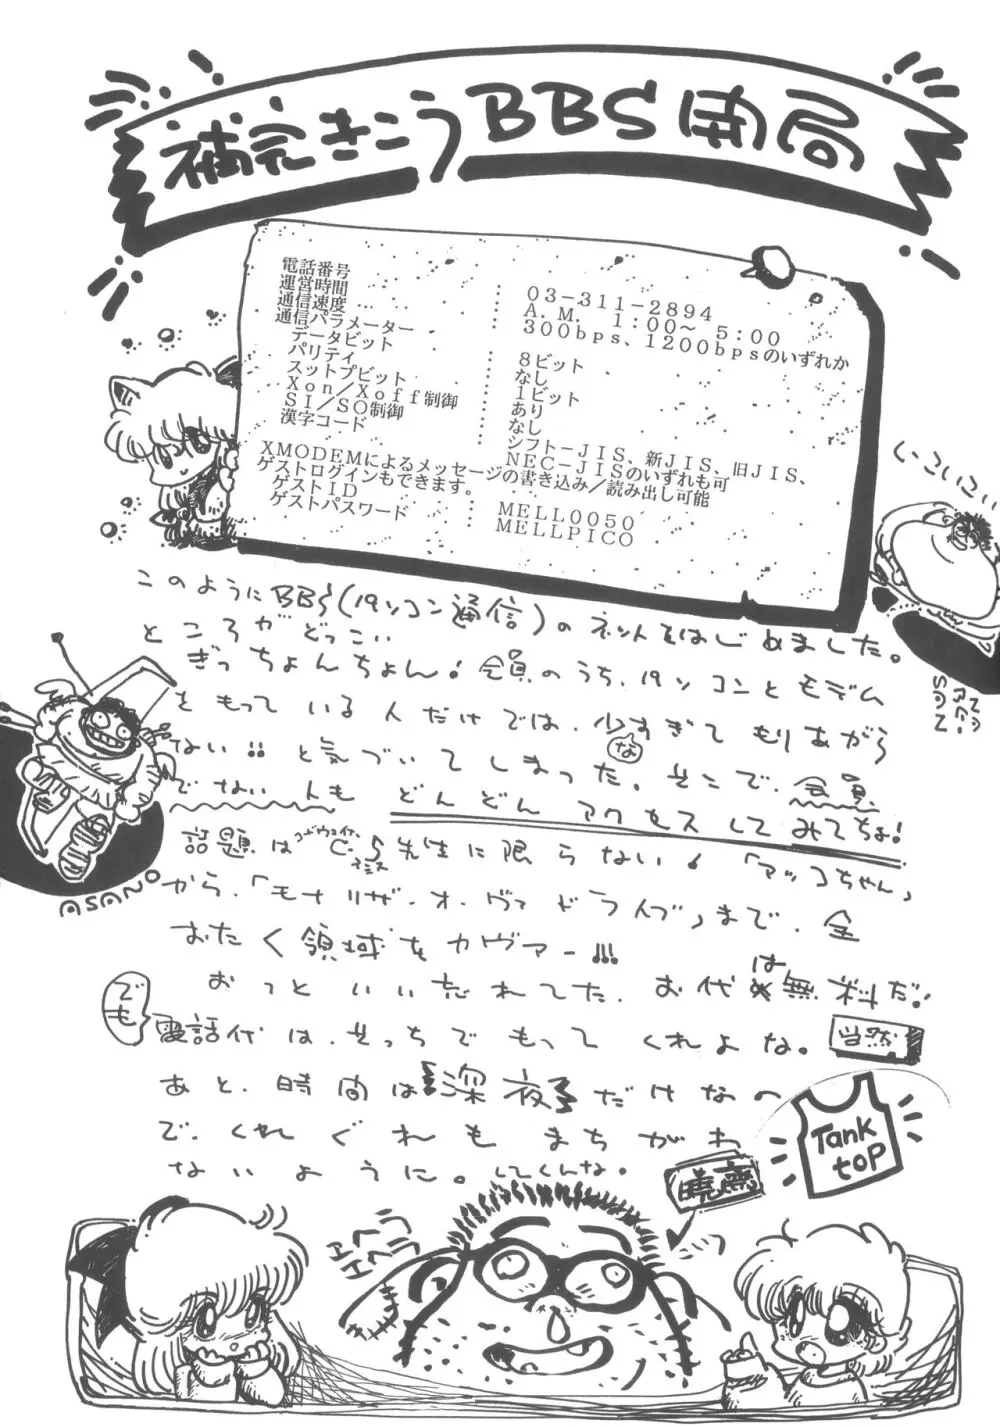 補完きこうBBS開局
電話番号 : 03-311-2894
運営時間 : A.M. 1:00~ 5:00
通信速度 : 300bps、1200bpsのいずれか
通信パラメーター
データビット : 8ビット
パリティ : なし
スットプビット : 1ビット
Xon/Xoff制御 : あり
SI/SO制御 : なし
漢字コード : シフト-JIS、新JIS、旧JIS、
NEC-JISのいずれも可
XMODEMによるメッセージの書き込み/読み出し可能
ゲストログインもできます。
ゲストID : MELL0050
ゲストパスワード : MELLPICO
このようにBBS(パソコン通信)のネットをはじめました。
ところがどっこい
ぎっちょんちょん!会員のうち、パソコンとモデム
をもっている人だけでは、少なすぎてもりあがら
ない!!と気づいてしまった。そこで、会員
でない人もどんどんアクセスしてみてちょ!
話題はC.S先生に限らない!「アッコちゃん」
から、「モナリザ・オーヴァドライブ」まで、全
おたく領域をカヴァー!!!
おっといい忘れてた、お代は無料だ!
でも電話代は、そっちでもってくれよな。当然
あと、時間は深夜だけなの
で、くれぐれもまちがわ
ないように。してくんな。
ASANO
Tank
top
暁斎
エヘラ
エヘラ